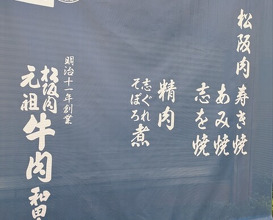 松阪肉
寿き焼
あみ焼
志を焼
精肉
志ぐれ煮
そぼろ煮
明治十一年創業
松阪肉
元祖
牛肉
和田